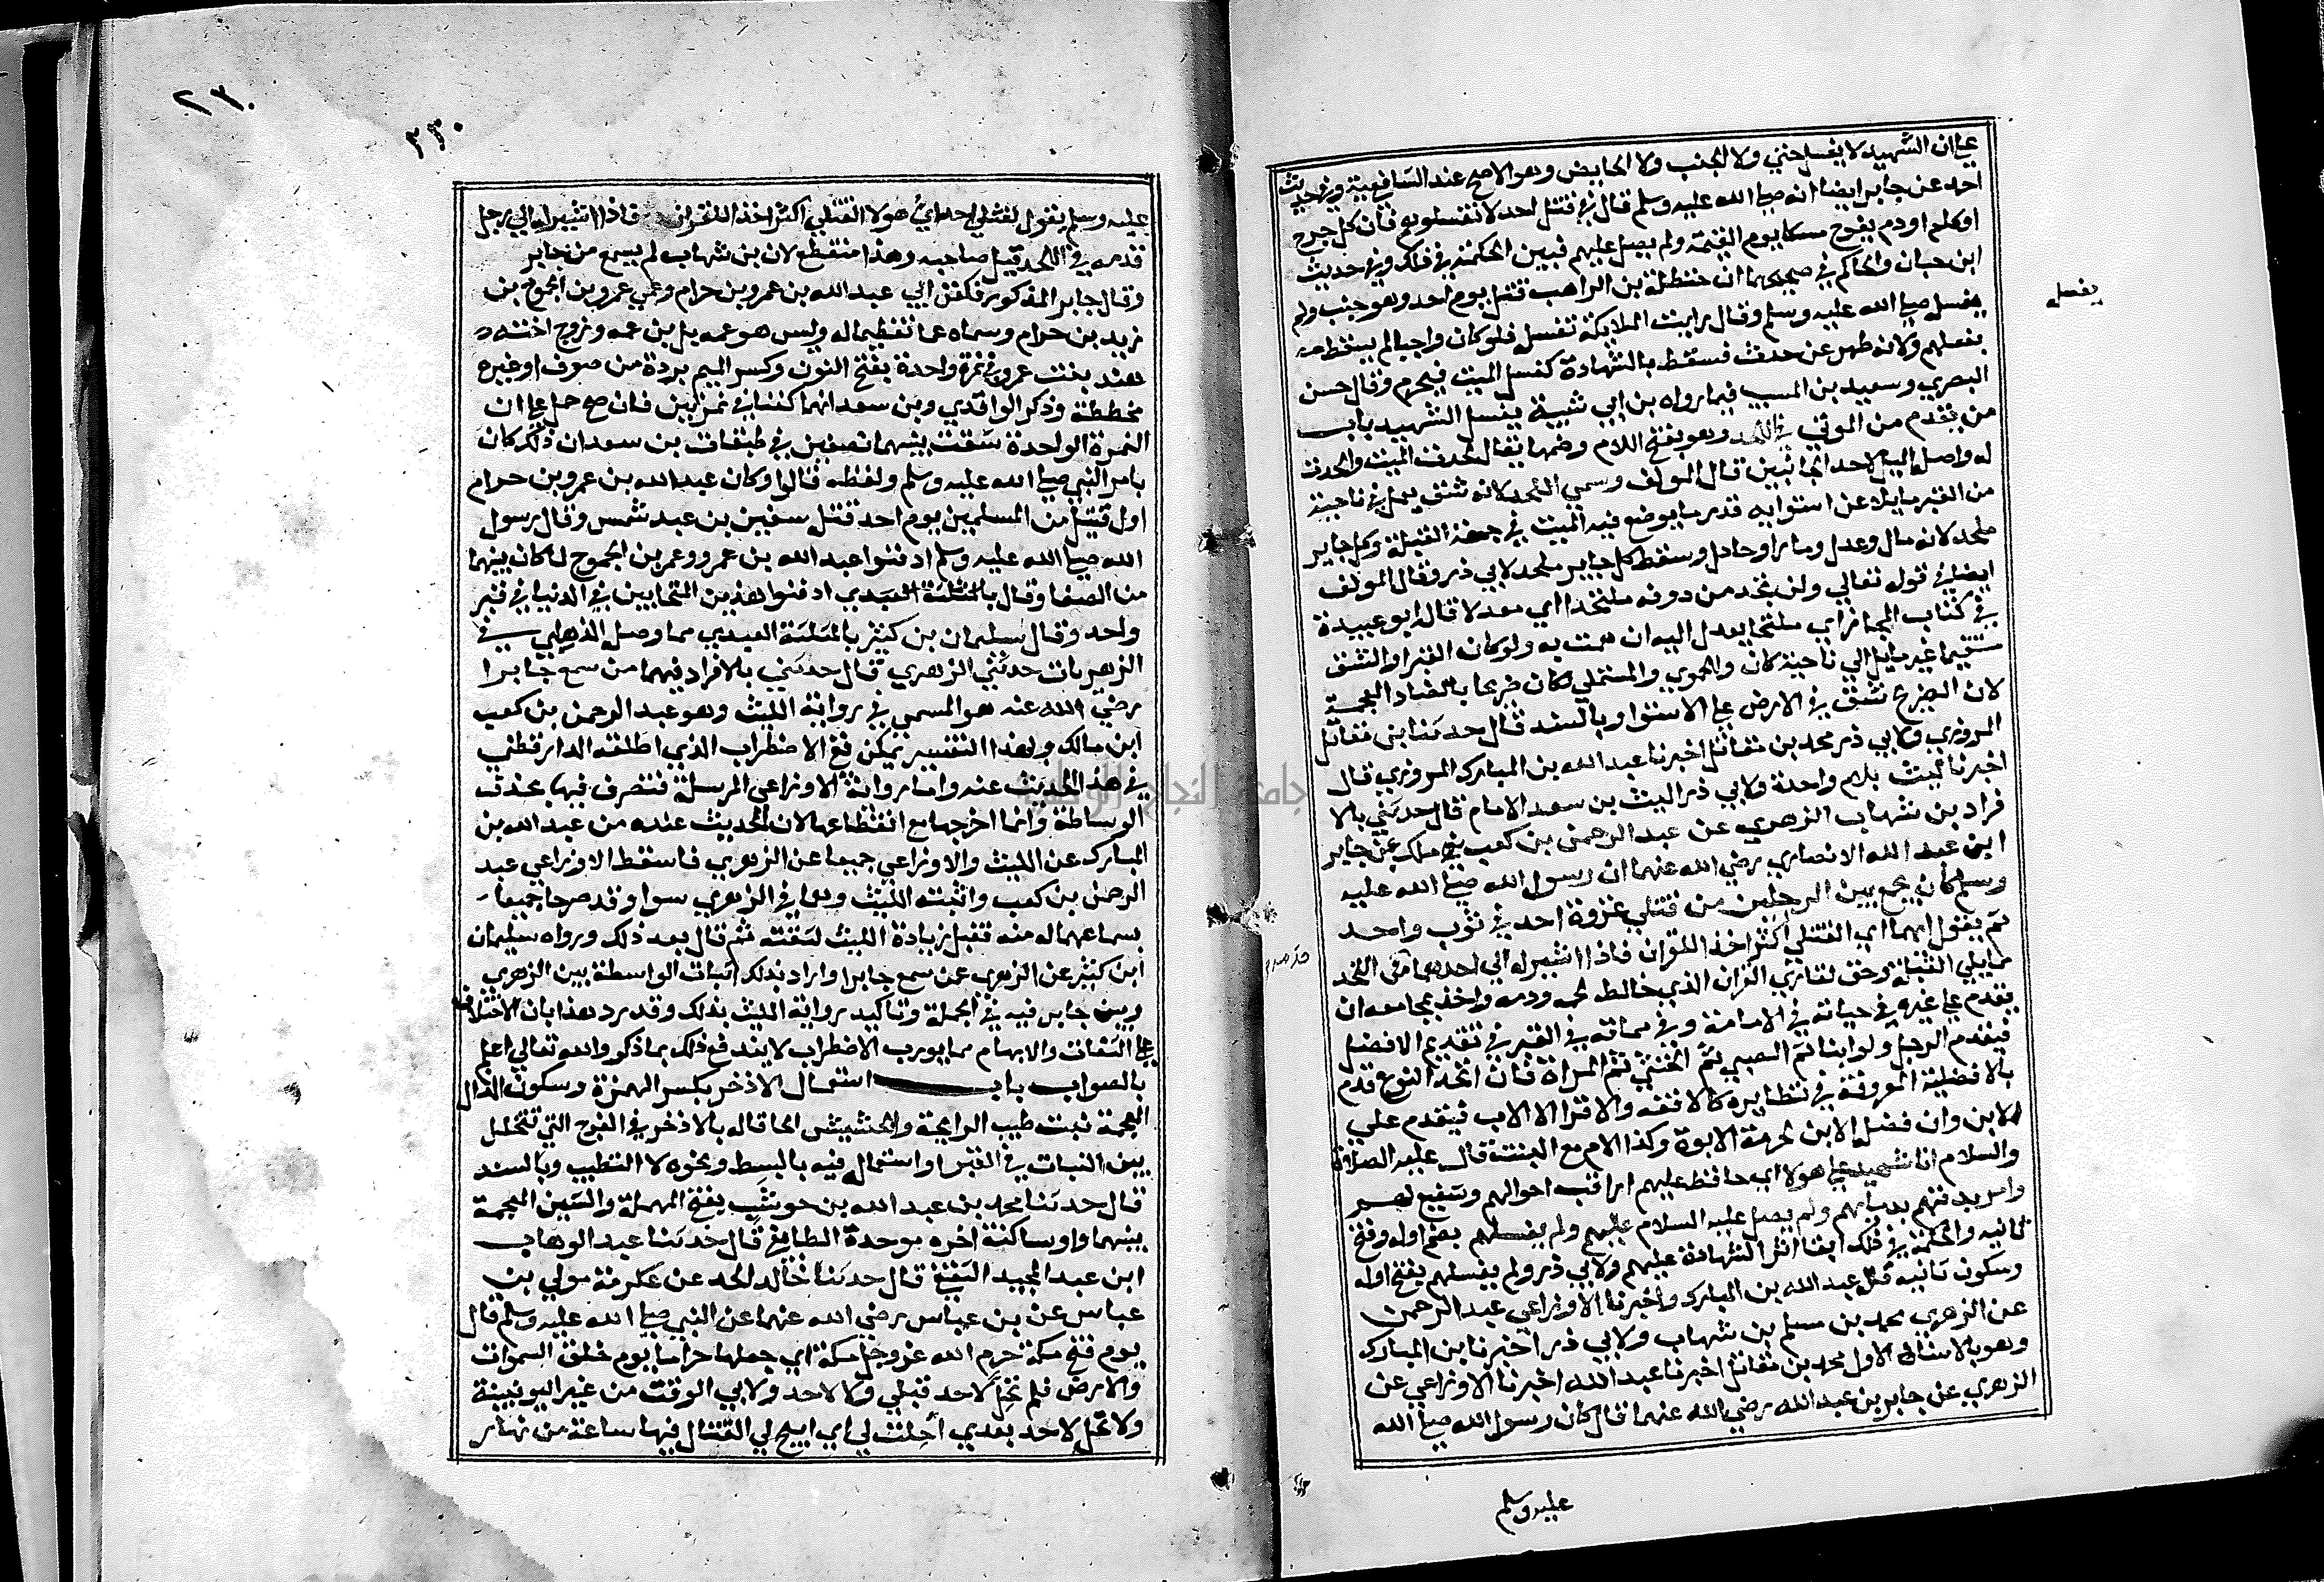 علي ان الشهيد لا يغسل حتي ولا الجنب ولا الحايض وهو الاصح عند الشافعية وفي حديث
احمد عن جابر ايضا انه صلي الله عليه وسلم قال في قتلي احد لا تغسلوهم فان كل جرح
او كلم او دم يفوح مسكا يوم القيمة ولم يصل عليهم فبين الحكمة في ذلك وفي حديث
ابن حبان والحاكم في صحيحهما ان حنظلة بن الراهب قتل يوم احد وهو جنب ولم
يغسل صلي الله عليه وسلم وقال رايت الملايكة تغسل فلو كان واجبا لم يسقط
يغسله
بفعلهم ولانه طهر عن حدث فسقط بالشهادة كغسل الميت فيحرم وقال حسن
البصري وسعيد بن المسيب فيما رواه بن ابي شيبة يغسل الشهيد باب
من يقدم من الموتي في اللحد وهو بفتح اللام وضمها يقال لحدت الميت والحدت
له واصله الميل لاحد الجانبين قال المولف وسمي اللحد لانه شق يعمل في ناحية
من القبر مايلا عن استوايه قدر ما يوضع فيه الميت في جهة القبلة وكل جاير
ملحد لانه مال وعدل وماري وحادل وسقط كل جاير ملحد لابي ذر وقال المولف
ايضا في قوله تعالي ولن تجد من دونه ملتحدا اي معدلا قال ابو عبيدة
في كتاب المجاز اي ملتجا يعدل اليه ان همت به ولو كان القبر او الشق
مستقيما غير مايل الي ناحية كان والحموي والمستملي لكان ضريحا بالضاد المعجمة
لان الضريح شق في الارض علي الاستوا وبالسند قال حدثنا ابن مقاتل
المروزي ولابي ذر محمد بن مقاتل اخبرنا عبد الله بن المبارك المروزي قال
اخبرنا ليث بلام واحدة ولابي ذر الليث بن سعد الامام قال حدثني بالا
فراد بن شهاب الزهري عن عبد الرحمن بن كعب بن ملك عن جابر
ابن عبد الله الانصاري رضي الله عنهما ان رسول الله صلي الله عليه
وسلم كان يجمع بين الرجلين من قتلي غزوة احد في ثوب واحد
ثم يقول ايهما اي القتلي اكثر اخذا للقران فاذا اشير له الي احدهما في اللحد
قدمه
مما يلي القبلة وحق لقاري القران الذي خالط لحمه ودمه واخذ بمجامعه ان
يقدم علي غيره في حياته في الامامة وفي مماته في القبر في تقديم الافضل
فيقدم الرجل ولو ابنا ثم الصبي ثم الخنثي ثم المراة فان اتحد النوع قدم
بالافضلية المعروفة في نظايره كالافقه والاقرا الا الاب فيقدم علي
الابن وان فضل الابن لحرمة الابوة وكذا الام مع البنت قال عليه الصلاة
والسلام انا شهيد علي هولا اي حافظ عليهم اراقب احوالهم وشفيع لهم
وامر بدفنهم بدمايهم ولم يصل عليه السلام عليهم ولم يغسلهم بضم اوله وفتح
ثانيه والحكمة في ذلك ابقا اثر الشهادة عليهم ولابي ذر ولم يغسلهم بفتح اوله
وسكون ثانيه قال عبد الله بن المبارك واخبرنا الاوزاعي عبد الرحمن
عن الزهري محمد بن مسلم بن شهاب ولابي ذر اخبرنا بن المبارك
وهو بالاسناد الاول محمد بن مقاتل اخبرنا عبد الله اخبرنا الاوزاعي عن
الزهري عن جابر بن عبد الله رضي الله عنهما قال كان رسول الله صلي الله
عليه وسلم
٢٣٠
٢٣٠
عليه وسلم يقول لقتلي احد اي هولا القتلي اكثر اخذا للقران فاذا اشير له الي رجل
قدمه في اللحد قبل صاحبه وهذا منقطع لان بن شهاب لم يسمع من جابر
وقال جابر المذكور فكفن ابي عبد الله بن عمرو بن حرام وعمي عمرو بن الجموح بن
زيد بن حرام وسماه عما تعظيما له وليس هو عمه بل بن عمه وزوج اخته
هند بنت عمرو في نمرة واحدة بفتح النون وكسر الميم بردة من صوف او غيره
مخططة وذكر الواقدي وبن سعد انهما كفنا في نمرتين فان صح حمل علي ان
النمرة الواحدة شقت بينهما نصفين في طبقات بن سعد ان ذلك كان
بامر النبي صلي الله عليه وسلم ولفظه قالوا وكان عبد الله بن عمرو بن حرام
اول قتيل من المسلمين يوم احد قتله سفين بن عبد شمس وقال رسول
الله صلي الله عليه وسلم ادفنوا عبد الله بن عمرو وعمر بن الجموح لما كان بينهما
من الصفا وقال بالمثلثة العبدي ادفنوا هذين المتحابين في الدنيا في قبر
واحد وقال سليمان بن كثير بالمثلثة العبدي مما وصل الذهلي في
الزهريات حدثني الزهري قال حدثني بالافراد فيهما من سمع جابرا
رضي الله عنه هو المسمي في رواية الليث وهو عبد الرحمن بن كعب
ابن مالك وبهذا التفسير يمكن نفي الاضطراب الذي اطلقه الدارقطني
في هذا الحديث عنه واما رواية الاوزاعي المرسلة فتصرف فيها بحذف
الوساطة وانما اخرجها مع انقطاعها لان الحديث عنده من عبد الله بن
المبارك عن الليث والاوزاعي جميعا عن الزهري فاسقط الاوزاعي عبد
الرحمن بن كعب واثبته الليث وهما في الزهري سوا وقد صرحا جميعا
بسماعهما له منه فقبل زيادة الليث لثقته ثم قال بعد ذلك ورواه سليمان
ابن كثير عن الزهري عمن سمع جابرا واراد بذلك اثبات الواسطة بين الزهري
وبين جابر فيه في الجملة وتاكيد رواية الليث بذلك وقد رد هذا بان الاختلاف
علي الثقات والابهام مما يورث الاضطراب لا يندفع ذلك بما ذكر والله تعالي اعلم
بالصواب باب استعمال الاذخر بكسر الهمزة وسكون الذال
المعجمة نبت طيب الرايحة والحشيش الحاقا له بالاذخر في الفرج التي تتخلل
بين اللبنات في القبر او استعماله فيه بالبسط ونحوه لا التطييب وبالسند
قال حدثنا محمد بن عبد الله بن حوشب بفتح المهملة والشين المعجمة
بينهما واو ساكنة اخره موحدة الطايفي قال حدثنا عبد الوهاب
ابن عبد المجيد الثقفي قال حدثنا خالد الحذ عن عكرمة مولي بن
عباس عن بن عباس رضي الله عنهما عن النبي صلي الله عليه وسلم قال
يوم فتح مكة حرم الله عز وجل مكة اي جعلها حراما يوم خلق السموات
والارض فلم تحل لاحد قبلي ولا لاحد ولابي الوقت من غير اليونينية
ولا تحل لاحد بعدي احلت لي اي ابيح لي القتال فيها ساعة من نهار
جامعة النجاح الوطنية